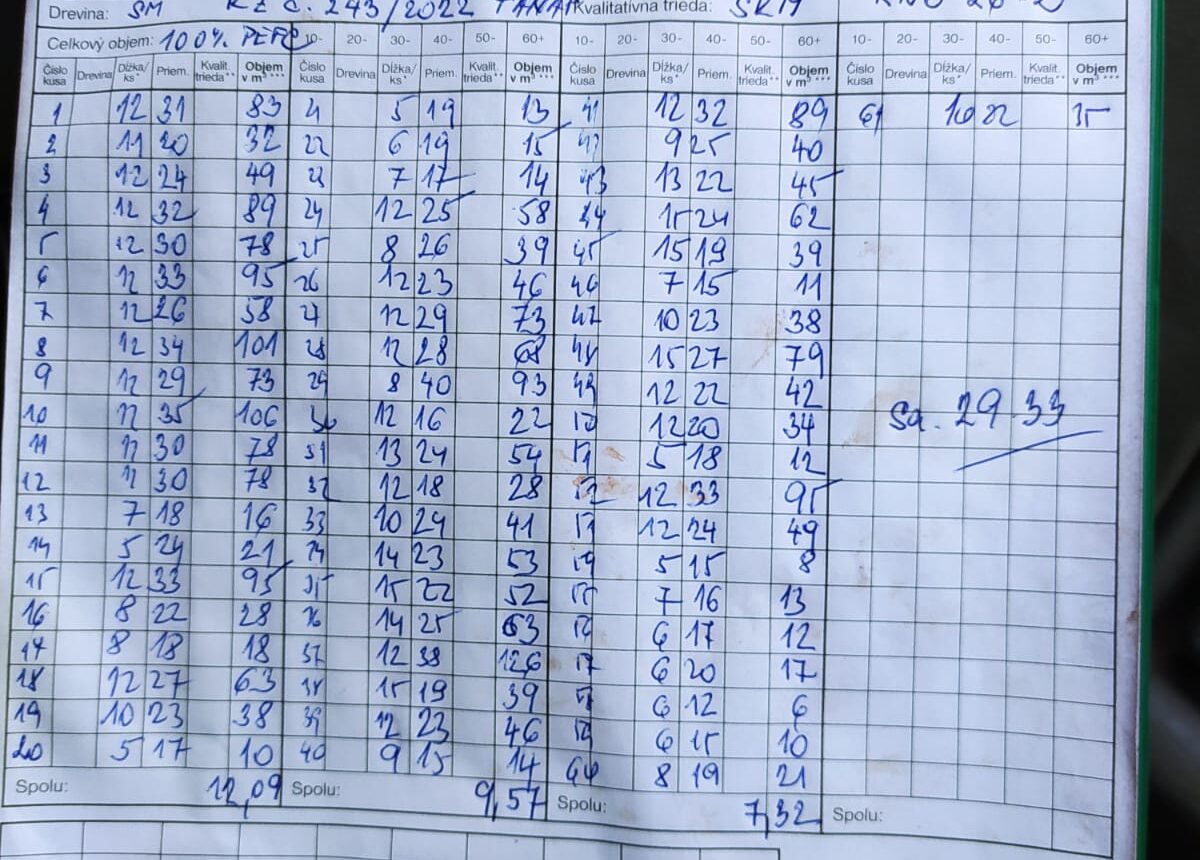 Drevina: SM KZ č. 243/2022 TANAP Kvalitatívna trieda: SKM
Celkový objem: 100% 10- 20- 30- 40- 50- 60+ 10- 20- 30- 40- 50- 60+ 10- 20- 30- 40- 50- 60+
Číslo kusa Drevina Dĺžka/ks* Priem. Kvalit. trieda** Objem v m³ *** Číslo kusa Drevina Dĺžka/ks* Priem. Kvalit. trieda** Objem v m³ *** Číslo kusa Drevina Dĺžka/ks* Priem. Kvalit. trieda** Objem v m³ *** Číslo kusa Drevina Dĺžka/ks* Priem. Kvalit. trieda** Objem v m³ ***
1 12 31 83 21 5 19 13 41 12 32 89 61 10 22 35
2 11 20 32 22 6 19 15 42 9 25 40
3 12 24 49 23 7 17 14 43 13 22 45
4 12 32 89 24 12 25 58 44 15 24 62
5 12 30 78 25 8 26 39 45 15 19 39
6 12 33 95 26 12 23 46 46 7 15 11
7 12 26 58 27 12 29 73 47 10 23 38
8 12 34 101 28 12 28 68 48 15 27 79
9 12 29 73 29 8 40 93 49 12 22 42
10 12 35 106 30 12 16 22 50 12 20 34
Sa. 29 33
11 12 30 78 31 13 24 54 51 5 18 12
12 12 30 78 32 12 18 28 52 12 33 95
13 7 18 16 33 10 24 41 53 12 24 49
14 5 24 21 34 14 23 53 54 5 15 8
15 12 33 95 35 15 22 52 55 7 16 13
16 8 22 28 36 14 25 63 56 6 17 12
17 8 18 18 37 12 38 126 57 6 20 17
18 12 27 63 38 15 19 39 58 6 12 6
19 10 23 38 39 12 23 46 59 6 15 10
20 5 17 10 40 9 15 14 60 8 19 21
Spolu: 12,09 Spolu: 9,57 Spolu: 7,32 Spolu: